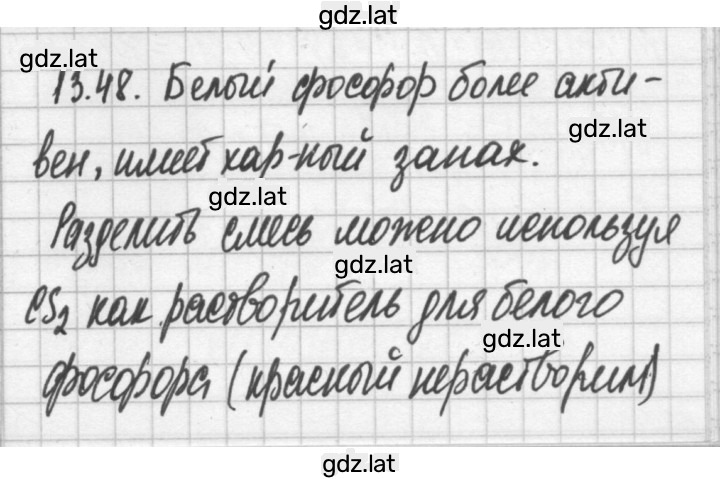 gdz.lat
gdz.lat
13.48. Белый фосфор более акти-
gdz.lat
вен, имеет хар-ный запах.
gdz.lat
Разделить смесь можно используя
gdz.lat
CS2 как растворитель для белого
gdz.lat
фосфора (красный нерастворим)
gdz.lat